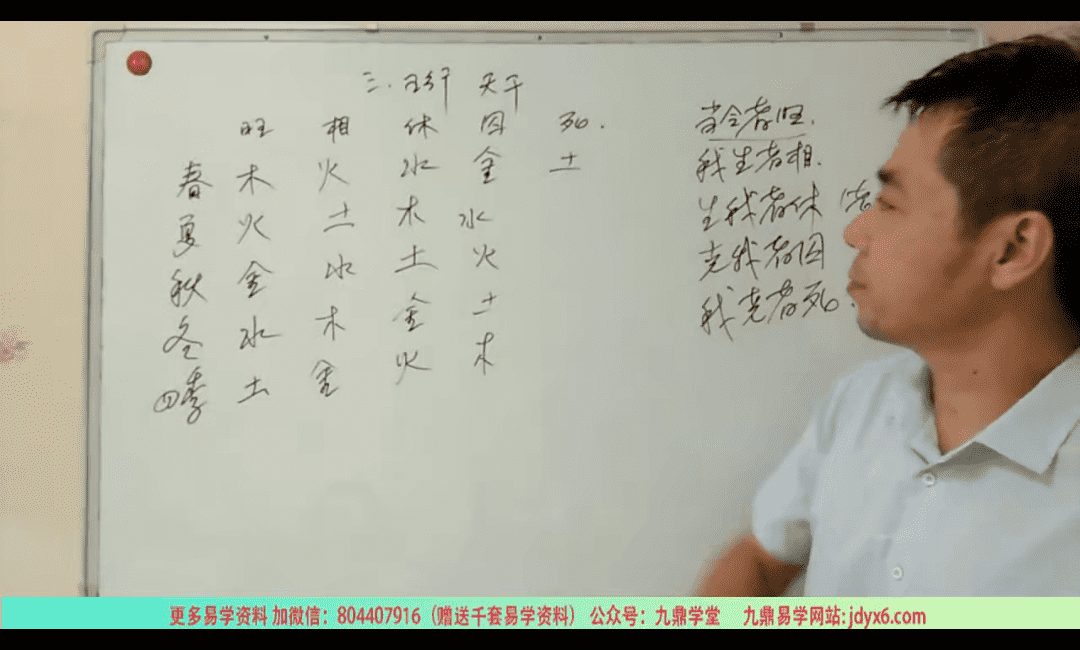 三.五行 天干
旺 相 休 囚 死.
春 木 火 水 金 土
夏 火 土 木 水
秋 金 水 土 火
冬 水 木 金 土
四季 土 金 火 木
当令者旺.
我生者相.
生我者休
克我者囚
我克者死.
更多易学资料 加微信：804407916（赠送千套易学资料） 公众号：九鼎学堂 九鼎易学网站:jdyx6.com